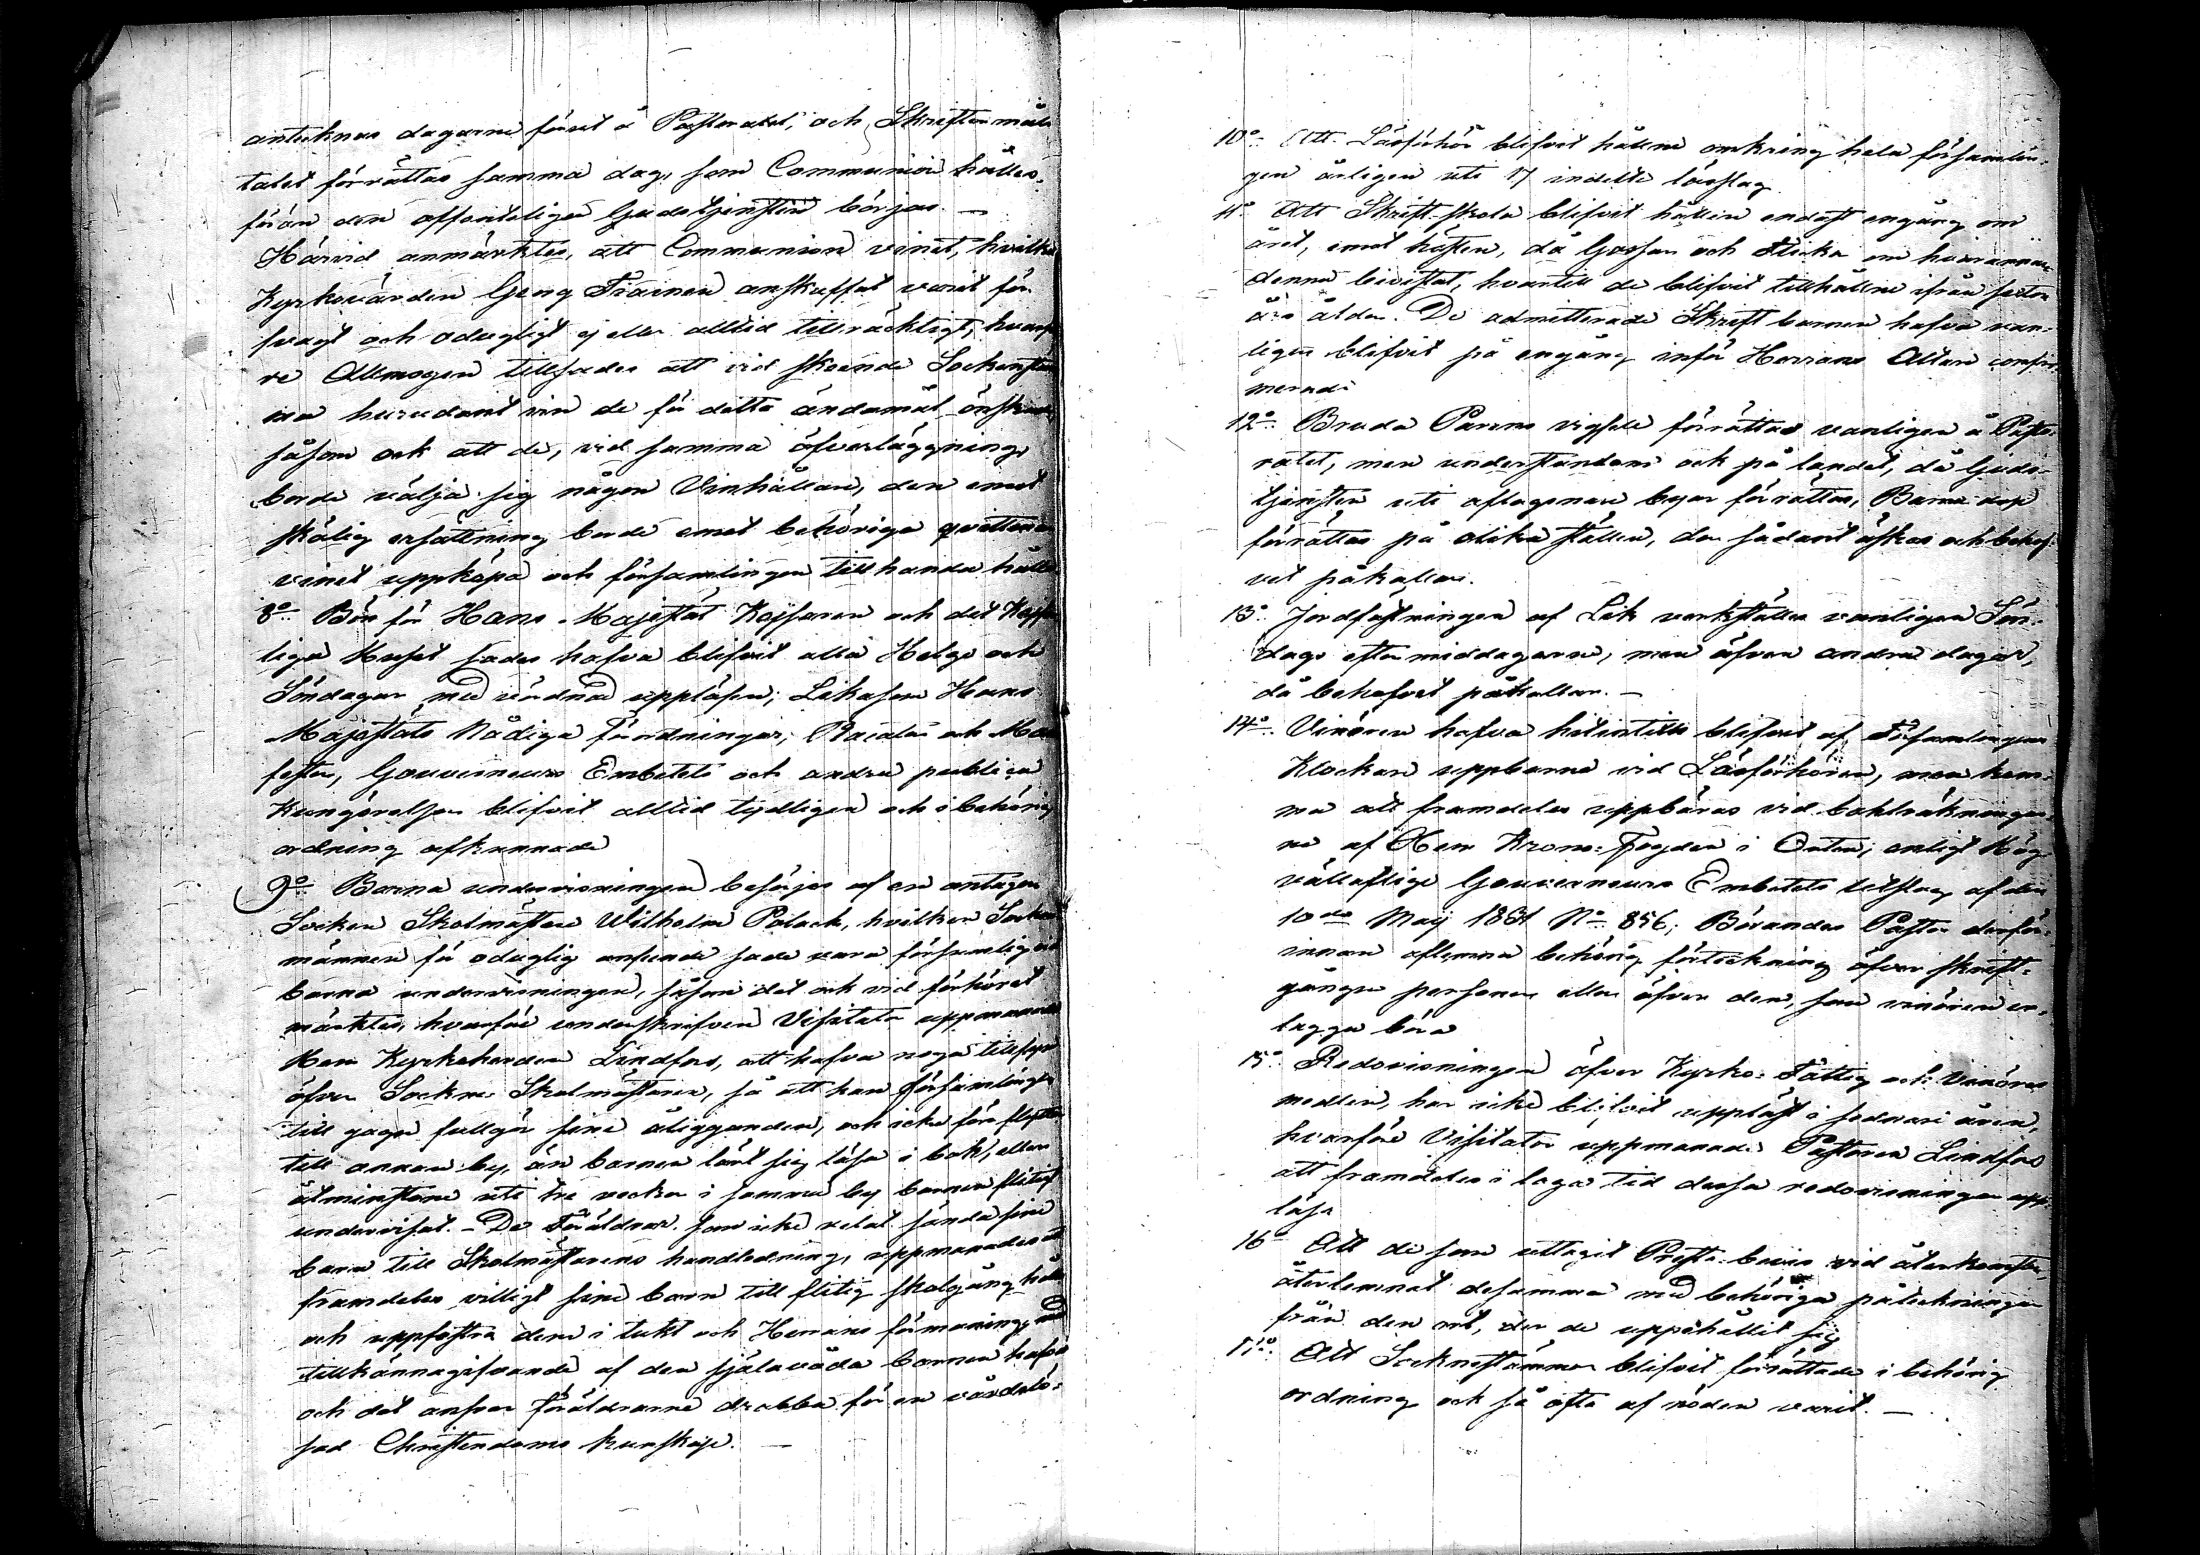 antecknas dagarne förut å Pastoratet, och Skriftermåls
talet förrättas samma dag, som Communion hålles,
förän den offenteliga Gudstjensten börjas. —
Härvid anmärktes, att Communion vinet, hvilket
Kyrkovärden Georg Trainen anskaffat varit för
svagt och odugligt ej eller alltid tillräckligt, hvarfö
re Allmogen tillsades att vid skeende Sockenstäm
ma hurudant vin de för detta ändamål önskade,
såsom ock att de, vid samma öfverläggning,
borde välja sig någon Vinhållare, den emot
skälig ersättning borde emot behöriga qvittencer
vinet uppköpa och församlingen tillhanda hålla
8o Bön för Hans Majestät Kejsaren och det Kejser
liga Huset sades hafva blifvit alla Helge och
Söndagar med vördnad uppläsen; Likasom Hans
Majestäts Nådiga Förordningar, Placater och Mani
fester, Gouverneurs Embetets och andra publiqua
Kungörelser blifvit alltid tydligen och i behörig
ordning afkunnade
9o Barna undervisningen besörjes af en antagen
Socken Skolmästare Wilhelm Polack, hvilken Socken
männen för oduglig ansende sade vara försumlig vid
barna undervisningen, såsom det ock vid förhöret
märktes, hvarföre underskrifven Visitator uppmanade
Herr Kyrkoherden Lindfors, att hafva noga tillsyn
öfver Sockne Skolmästaren, så att han församlingen
till gagn fullgör sine åligganden, och icke förr flyttar
till annan by, än barnen lärt sig läsa i bok, eller
åtminstone uti tre veckor i samma by barnen flitigt
undervisat. — De Föräldrar som icke velat sända sine
barn till Skolmästarens handledning, uppmanades att
framdeles villigt sine barn till flitig skolgång hålla
och uppfostra dem i tukt och Herrans förmaning, med
tillkännagifvande af den själavåda barnen hafva
och det ansvar föräldrarne drabba för en vårdslö-
sad Christendoms kunskap. —
10o Att Läsförhör blifvit hållne omkring hela församlin-
gen årligen uti 17 indelte lässlag.
11o Att Skrift-skola blifvit hållen endast engång om
året, emot hösten, då Gossar och Flickor om hvarannan
denna bivistat, hvartill de blifvit tillhållne ifrån sexton
års ålder. De admitterade Skrift barnen hafva van-
ligen blifvit på engång inför Herrans Altare confir-
merade
12o Bruda Parens vigsel förrättas vanligen å Pasto-
ratet, men understundom ock på landet, då Guds-
tjensten uti aflägsnare byar förrättas, Barna dop
förrättas på olika ställen, der sådant äskas och behof-
vet påkallar.
13o Jordfästningen af Lik verkställes vanligen Sön-
dags eftermiddagarne, men äfven andra dagar,
då behofvet påkallar. —
14o Vinören hafva hitintills blifvit af Församlingens
Klockare uppburne vid Läsförhören, men kom-
ma att framdeles uppbäras vid bokräkningar-
ne af Herr Krono-Fogden i Orten, enligt Hög-
vällaflige Gouverneurs Embetets utslag af den
10de Maij 1831 No 856; Börandes Pastor derför-
innan aflemna behörig förteckning öfver skrift-
gångne personer eller öfver dem, som vinören er-
lägga böra
15o Redovisningen öfver Kyrko- Fattig och Vinöres
medlen, har icke blifvit uppläst i sednare åren,
hvarföre Visitator uppmanade Pastoren Lindfors
att framdeles i laga tid dessa redovisningar upp-
läsa
16o Att de som uttagit Prest-bevis vid återkomsten,
återlemnat desamma med behöriga påteckningar
från den ort, der de uppehållit sig
17o Att Socknestämmor blifvit förrättade i behörig
ordning och så ofta af nöden varit. —